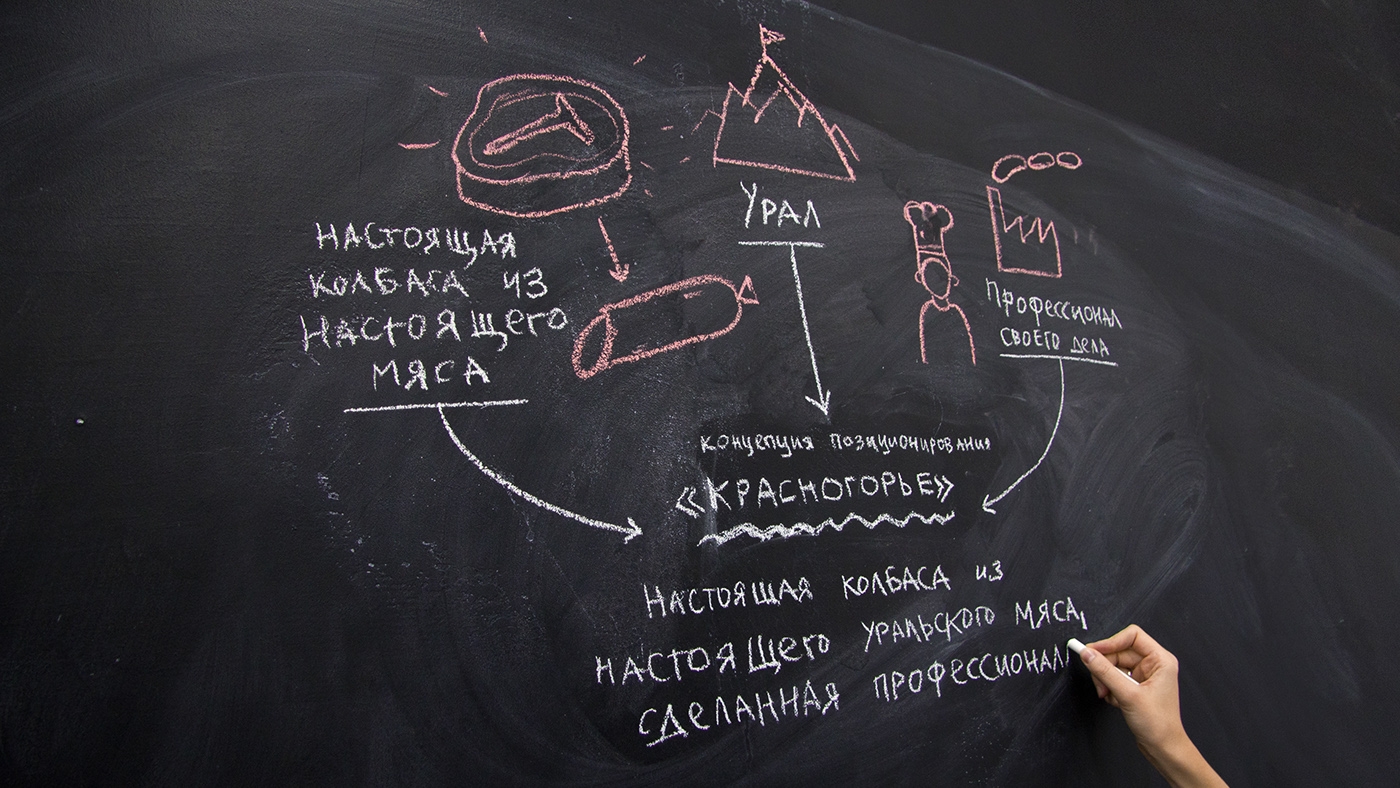 НАСТОЯЩАЯ
КОЛБАСА ИЗ
НАСТОЯЩЕГО
МЯСА
УРАЛ
ПРОФЕССИОНАЛ
СВОЕГО ДЕЛА
КОНЦЕПЦИЯ ПОЗИЦИОНИРОВАНИЯ
«КРАСНОГОРЬЕ»
НАСТОЯЩАЯ КОЛБАСА ИЗ
НАСТОЯЩЕГО УРАЛЬСКОГО МЯСА,
СДЕЛАННАЯ ПРОФЕССИОНАЛ